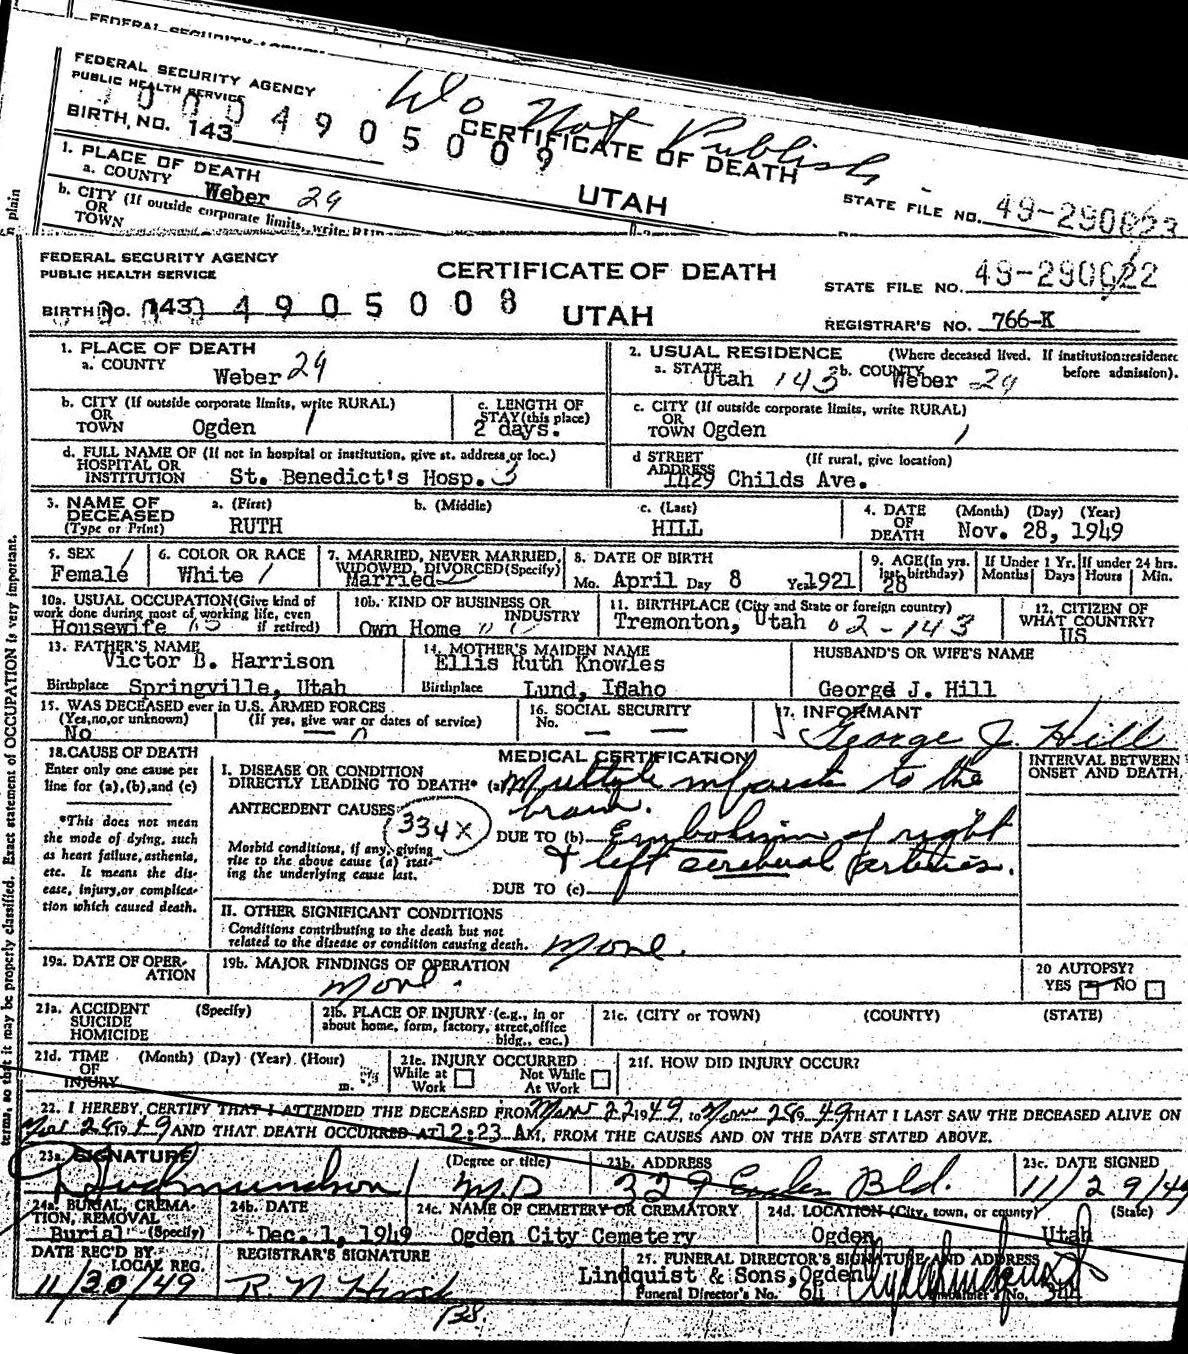 FEDERAL SECURITY AGENCY
PUBLIC HEALTH SERVICE
Do Not Publish
BIRTH NO. 143
0004905009
CERTIFICATE OF DEATH
UTAH
STATE FILE NO. 49-290023
1. PLACE OF DEATH
a. COUNTY Weber 29
b. CITY (If outside corporate limits, write RURAL
OR
TOWN
n plain
FEDERAL SECURITY AGENCY
PUBLIC HEALTH SERVICE
CERTIFICATE OF DEATH
STATE FILE NO. 49-290022
BIRTH NO. 143 4905008
UTAH
REGISTRAR'S NO. 766-K
1. PLACE OF DEATH
a. COUNTY Weber 29
2. USUAL RESIDENCE (Where deceased lived. If institution: residence before admission).
a. STATE Utah 143 b. COUNTY Weber 29
b. CITY (If outside corporate limits, write RURAL)
OR
TOWN Ogden 1
c. LENGTH OF STAY (this place)
2 days.
c. CITY (If outside corporate limits, write RURAL)
OR
TOWN Ogden 1
d. FULL NAME OF (If not in hospital or institution, give st. address or loc.)
HOSPITAL OR
INSTITUTION St. Benedict's Hosp. 3
d STREET ADDRESS (If rural, give location)
1429 Childs Ave.
3. NAME OF DECEASED (Type or Print)
a. (First) b. (Middle) c. (Last)
RUTH HILL
4. DATE OF DEATH (Month) (Day) (Year)
Nov. 28, 1949
5. SEX
Female 1
6. COLOR OR RACE
White 1
7. MARRIED, NEVER MARRIED, WIDOWED, DIVORCED (Specify)
Married 2
8. DATE OF BIRTH
Mo. April Day 8 Year 1921
9. AGE (In yrs. last birthday)
28
If Under 1 Yr. Months Days
If under 24 hrs. Hours Min.
10a. USUAL OCCUPATION (Give kind of work done during most of working life, even if retired)
Housewife
10b. KIND OF BUSINESS OR INDUSTRY
Own Home
11. BIRTHPLACE (City and State or foreign country)
Tremonton, Utah 02-143
12. CITIZEN OF WHAT COUNTRY?
US
13. FATHER'S NAME
Victor D. Harrison
Birthplace Springville, Utah
14. MOTHER'S MAIDEN NAME
Ellis Ruth Knowles
Birthplace Lund, Idaho
HUSBAND'S OR WIFE'S NAME
George J. Hill
15. WAS DECEASED ever in U.S. ARMED FORCES
(Yes, no, or unknown) (If yes, give war or dates of service)
No
16. SOCIAL SECURITY No.
17. INFORMANT
George J. Hill
18. CAUSE OF DEATH
Enter only one cause per line for (a), (b), and (c)
*This does not mean the mode of dying, such as heart failure, asthenia, etc. It means the disease, injury, or complication which caused death.
MEDICAL CERTIFICATION
INTERVAL BETWEEN ONSET AND DEATH
I. DISEASE OR CONDITION DIRECTLY LEADING TO DEATH* (a) Multiple infarcts to the brain.
ANTECEDENT CAUSES
334X
Morbid conditions, if any, giving rise to the above cause (a) stating the underlying cause last.
DUE TO (b) Embolism of right & left cerebral arteries.
DUE TO (c)
II. OTHER SIGNIFICANT CONDITIONS
Conditions contributing to the death but not related to the disease or condition causing death. None.
19a. DATE OF OPERATION
19b. MAJOR FINDINGS OF OPERATION
None.
20 AUTOPSY?
YES NO
21a. ACCIDENT SUICIDE HOMICIDE (Specify)
21b. PLACE OF INJURY (e.g., in or about home, form, factory, street, office bldg., exc.)
21c. (CITY or TOWN) (COUNTY) (STATE)
21d. TIME OF INJURY (Month) (Day) (Year) (Hour) m.
21e. INJURY OCCURRED
While at Work Not While At Work
21f. HOW DID INJURY OCCUR?
22. I HEREBY CERTIFY THAT I ATTENDED THE DECEASED FROM Nov 22 1949, to Nov 28 1949 THAT I LAST SAW THE DECEASED ALIVE ON
Nov 28 1949 AND THAT DEATH OCCURRED AT 12:23 AM, FROM THE CAUSES AND ON THE DATE STATED ABOVE.
23a. SIGNATURE (Degree or title)
M.D
23b. ADDRESS
329 Eccles Bld.
23c. DATE SIGNED
11/29/49
24a. BURIAL, CREMATION, REMOVAL (Specify)
Burial
24b. DATE
Dec. 1, 1949
24c. NAME OF CEMETERY OR CREMATORY
Ogden City Cemetery
24d. LOCATION (City, town, or county) (State)
Ogden Utah
DATE REC'D BY LOCAL REG.
11/30/49
REGISTRAR'S SIGNATURE
25. FUNERAL DIRECTOR'S SIGNATURE AND ADDRESS
Lindquist & Sons, Ogden
Funeral Director's No. 64
terms, so that it may be properly classified. Exact statement of OCCUPATION is very important.